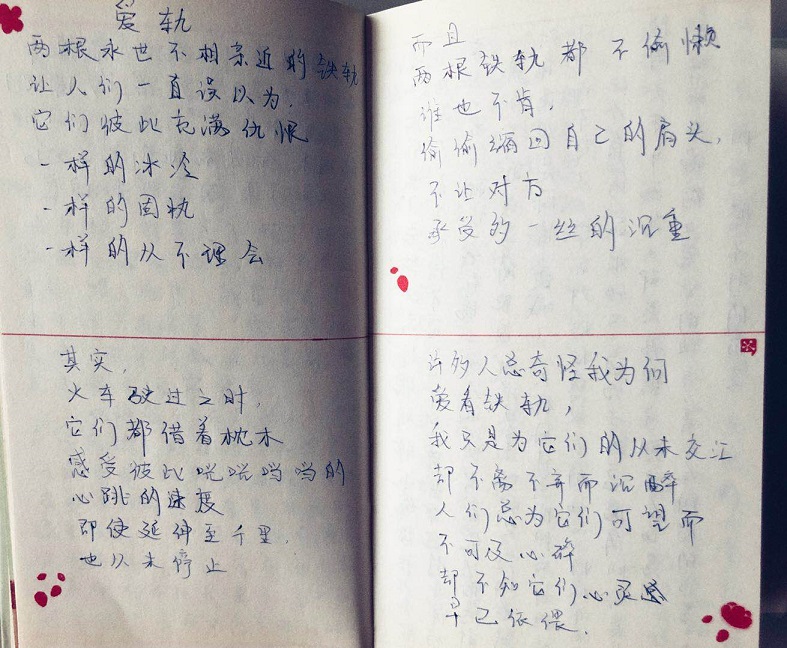 爱轨
两根永世不相亲近的铁轨
让人们一直误以为,
它们彼此充满仇恨
一样的冰冷
一样的固执
一样的从不理会
其实,
火车驶过之时,
它们都借着枕木
感受彼此哐哐当当的
心跳的速度
即使延伸至千里,
也从未停止
而且
两根铁轨都不偷懒
谁也不肯,
偷偷缩回自己的肩头,
不让对方
承受多一丝的沉重
许多人总奇怪我为何
爱着铁轨,
我只是为它们的从未交汇
却不离不弃而沉醉
人们总为它们可望而
不可及心碎
却不知它们心灵
早已依偎.